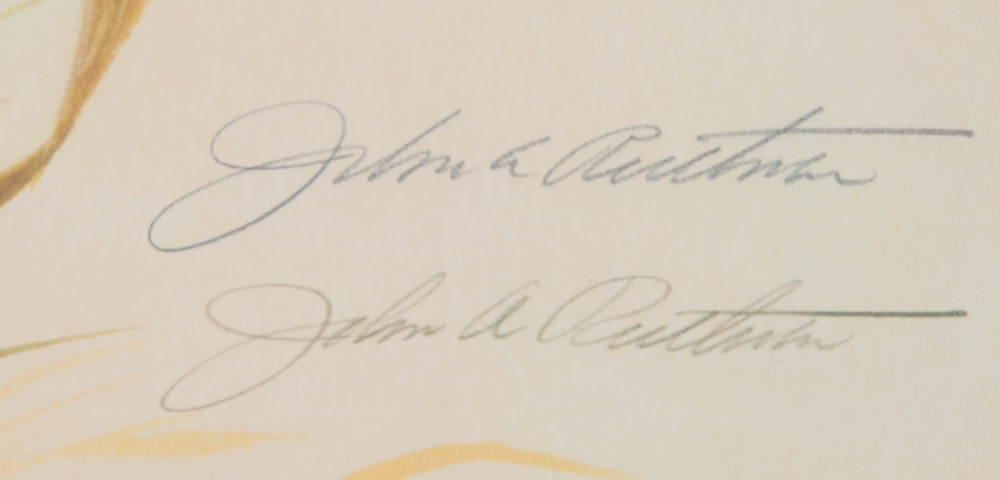 John A Ruthven
John A Ruthven